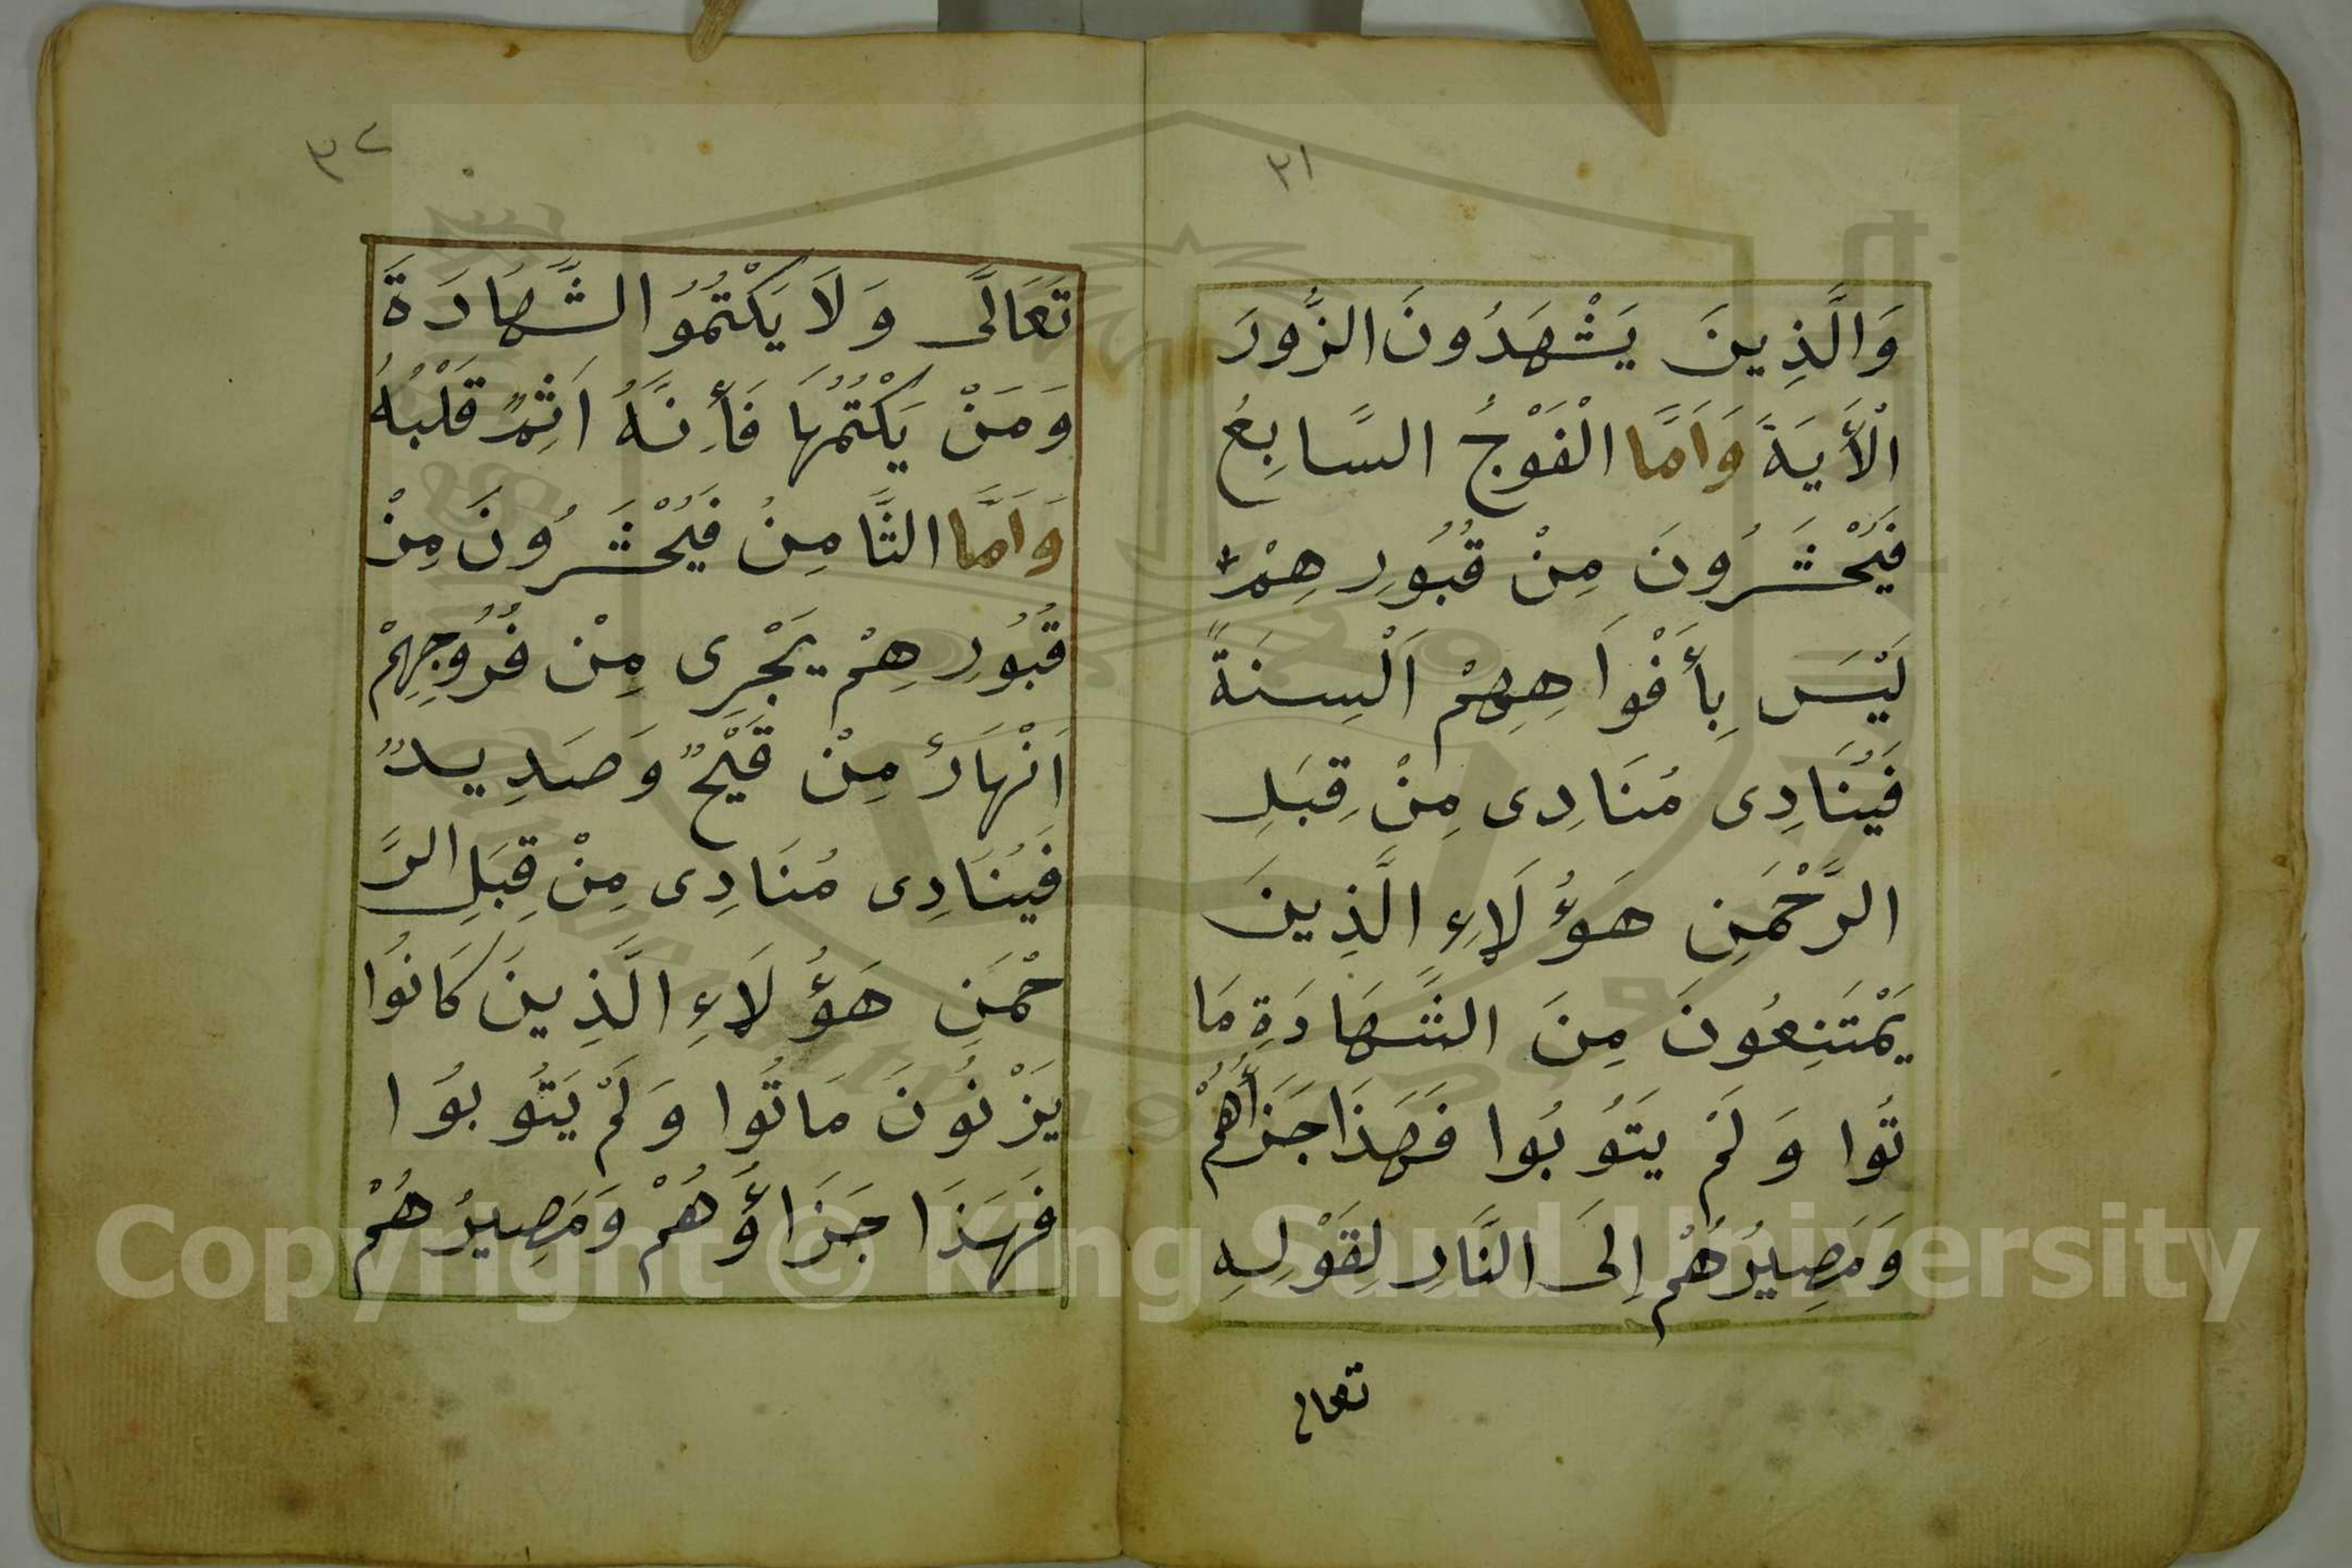 ٣١
وَالَّذِينَ يَشْهَدُونَ الزُّورَ
الْأَيَةَ وَاَمَّا الْفَوْجُ السَّابِعُ
فَيُحْشَرُونَ مِنْ قُبُورِهِمْ
لَيْسَ بِأَفْوَاهِهِمْ اَلْسِنَةً
فَيُنَادِى مُنَادِى مِنْ قِبَلِ
الرَّحْمَنِ هَؤُلَاءِ الَّذِينَ
يَمْتَنِعُونَ مِنَ الشَّهَادَةِ مَا
تُوا وَلَمْ يَتُوبُوا فَهَذَا جَزَأُهُمْ
وَمَصِيرُهُمْ اِلَى النَّارِ لِقَوْلِهِ
تعالى
٣٢
تَعَالَى وَلَا يَكْتُمُوُ الشَّهَادَةَ
وَمَنْ يَكْتُمُهَا فَأِنَّهُ اَثِمٌ قَلْبُهُ
وَاَمَّا الثَّامِنُ فَيُحْشَرُونَ مِنْ
قُبُورِهِمْ يَجْرِى مِنْ فُرُوجِهِمْ
اَنْهَارٌ مِنْ قَيْحٌ وَصَدِيدٌ
فَيُنَادِى مُنَادِى مِنْ قِبَلِ الرَّ
حْمَنِ هَؤُلَاءِ الَّذِينَ كَانُوا
يَزْنُونَ مَاتُوا وَلَمْ يَتُوبُوا
فَهَذَا جَزَاؤُهُمْ وَمَصِيرُهُمْ
Copyright © King Saud University